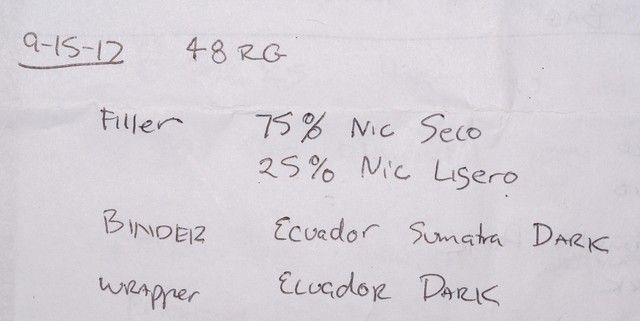 9-15-12 48 RG
Filler 75% Nic Seco
25% Nic Ligero
BINDER Ecuador Sumatra DARK
WRAPPer EcuADOR DARK